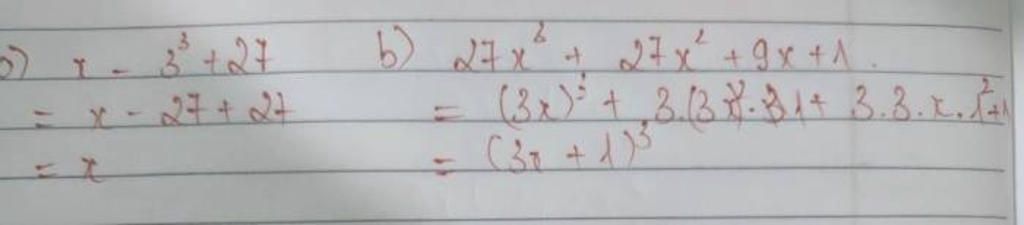 a) x - 3³ + 27
= x - 27 + 27
= x
b) 27x³ + 27x² + 9x + 1.
= (3x)³ + 3.(3x)².1 + 3.3.x.1² + 1
= (3x + 1)³